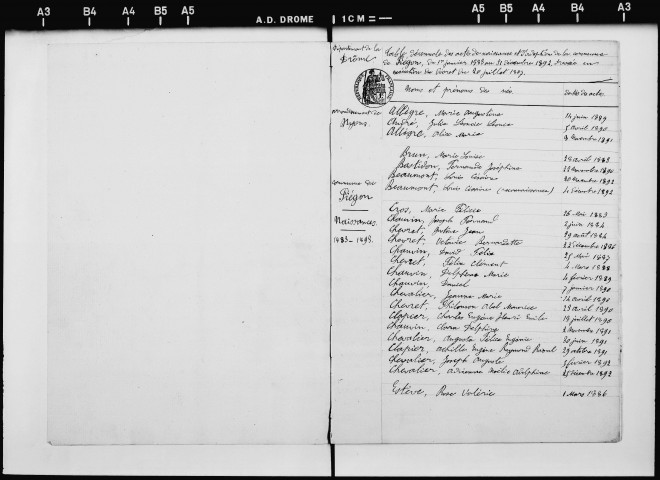 A3 B4 A4 B5 A5 A.D. DROME 1 CM A5 B5 A4 B4 A3
Département de la Drôme
Table décennale des actes de naissance et d'adoption de la commune
de Piégon, du 1er janvier 1883 au 31 Décembre 1892, dressée en
exécution du Décret du 20 juillet 1807.
Noms et prénoms des nés. Dates des actes.
arrondissement de
Nyons.
Allègre, Marie Augustine 14 juin 1889
André, Julie 5 avril 1890
Allègre, Alix Marie Novembre 1891
Brun, Marie Louise avril 1883
Bastidon, Fernande Joséphine Novembre 1890
Beaumont, Louis Césaire 20 Novembre 1892
Beaumont, Louis Césaire (reconnaissance) 4 Décembre 1892
commune de
Piégon
Naissances.
1883-1893.
Cros, Marie Félicie 26 Mai 1883
Chauvin, Joseph Fernand 2 juin 1884
Chevret, Jean 29 août 1884
Chevret, Valérie Bernardette 22 Décembre 1886
Chauvin, David Félix 25 Août 1887
Chevret, Félix Clément 4 Mars 1888
Chauvin, Delphine Marie 4 février 1889
Chauvin, Daniel 7 janvier 1890
Chevalier, Jeanne Marie 14 avril 1890
Chevret, Philémon Abel Maurice 23 avril 1890
Clapier, Charles Eugène Henri Emile 18 juillet 1890
Chauvin, Clara Delphine 2 Novembre 1891
Chevalier, Augusta Félicie Eugénie 30 juin 1891
Clapier, Achille Eugène Raymond Raoul 29 octobre 1891
Chevalier, Joseph Auguste 5 février 1892
Chevalier, Adrienne Noélie Adolphine 25 Décembre 1892
Estève, Rose Valérie 1 Mars 1886